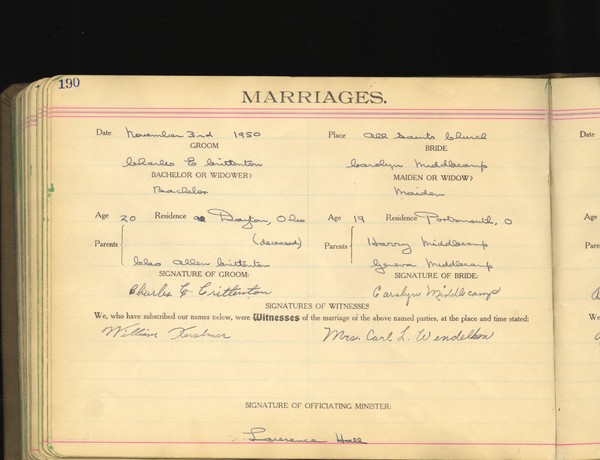 190
MARRIAGES.
Date November 3rd 1950 Place All Saints Church Date
GROOM BRIDE
Charles E Crittenton Carolyn Middlecamp
BACHELOR OR WIDOWER? MAIDEN OR WIDOW?
Bachelor Maiden
Age 20 Residence Dayton, Ohio Age 19 Residence Portsmouth, O Age
(deceased) Harry Middlecamp
Parents Parents Pare
Cleo Allen Crittenton Geneva Middlecamp
SIGNATURE OF GROOM: SIGNATURE OF BRIDE:
Charles E Crittenton Carolyn Middlecamp
SIGNATURES OF WITNESSES
We, who have subscribed our names below, were Witnesses of the marriage of the above named parties, at the place and time stated: We
William Kershner Mrs. Carl L. Wendelken
SIGNATURE OF OFFICIATING MINISTER:
Lawrence Hall